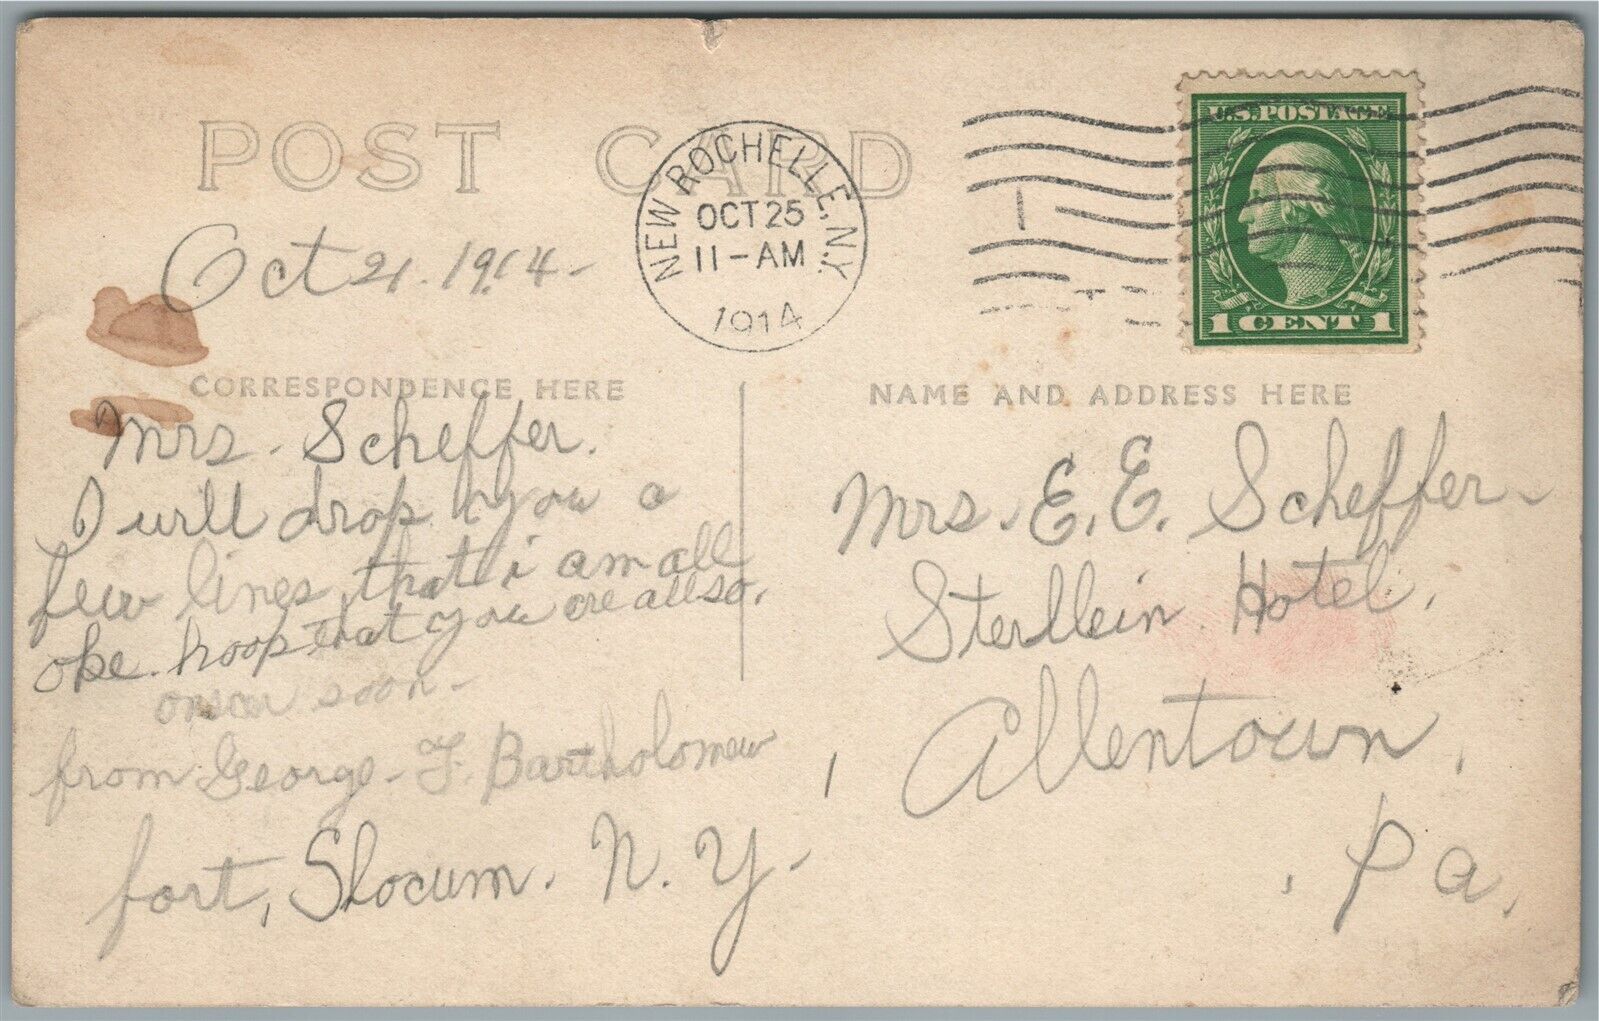 POST CARD
NEW ROCHELLE, N.Y.
OCT 25
11-AM
1914
U.S. POSTAGE
1 CENT 1
Oct 21. 1914-
CORRESPONDENCE HERE
NAME AND ADDRESS HERE
Mrs. Scheffer.
I will drop you a
few lines that i am all
oke. hoop that you are allso.
onser soon-
from George. F. Bartholomew
fort, Slocum. N. Y-
Mrs. E. E. Scheffer-
Sterllein Hotel,
Allentown,
Pa,